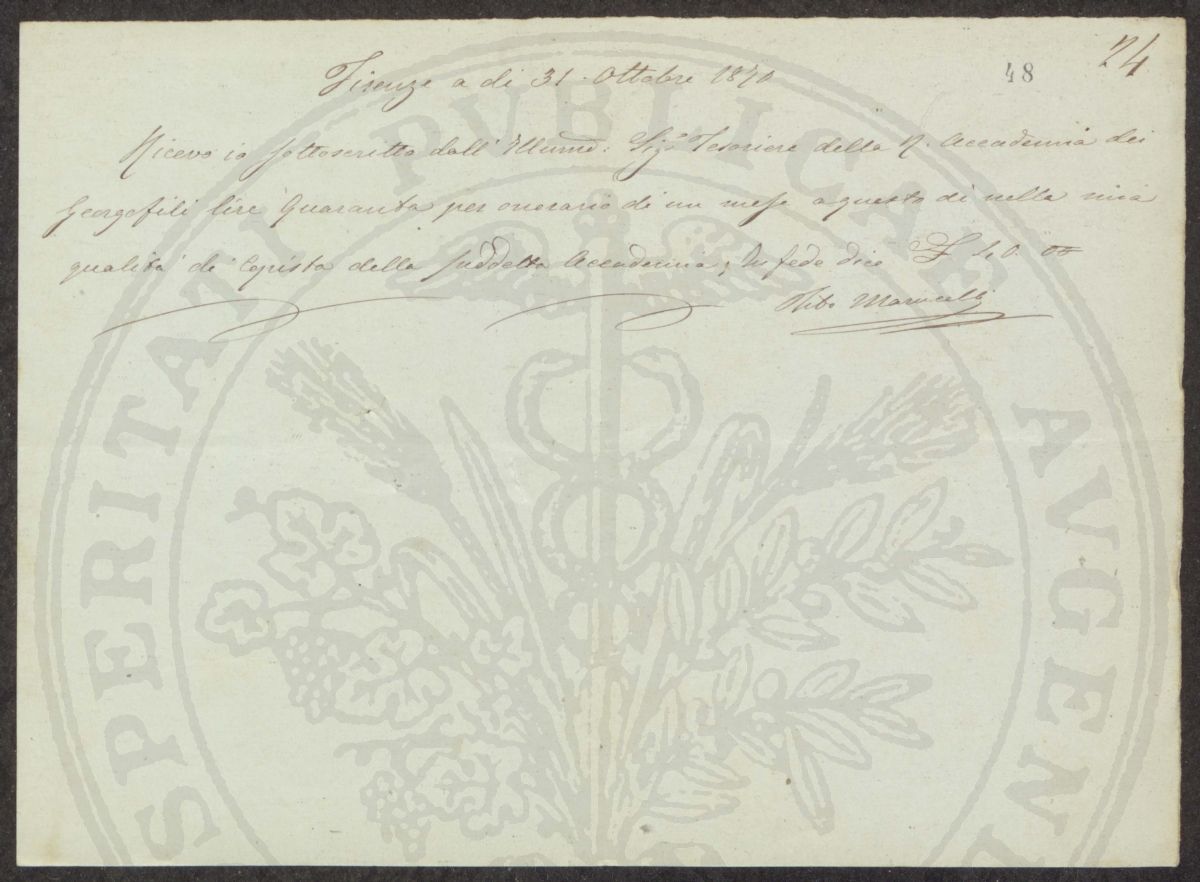 24
48
Firenze a di 31. Ottobre 1870
Ricevo io sottoscritto dall' Illumo: Sigr Tesoriere della R. Accademia dei
Georgofili lire Quaranta per onorario di un mese a questo dì nella mia
qualità di Copista della suddetta Accademia; In fede dico £ 40. 00
Marucelli
SPERITATI PVBLICAE AVGEN